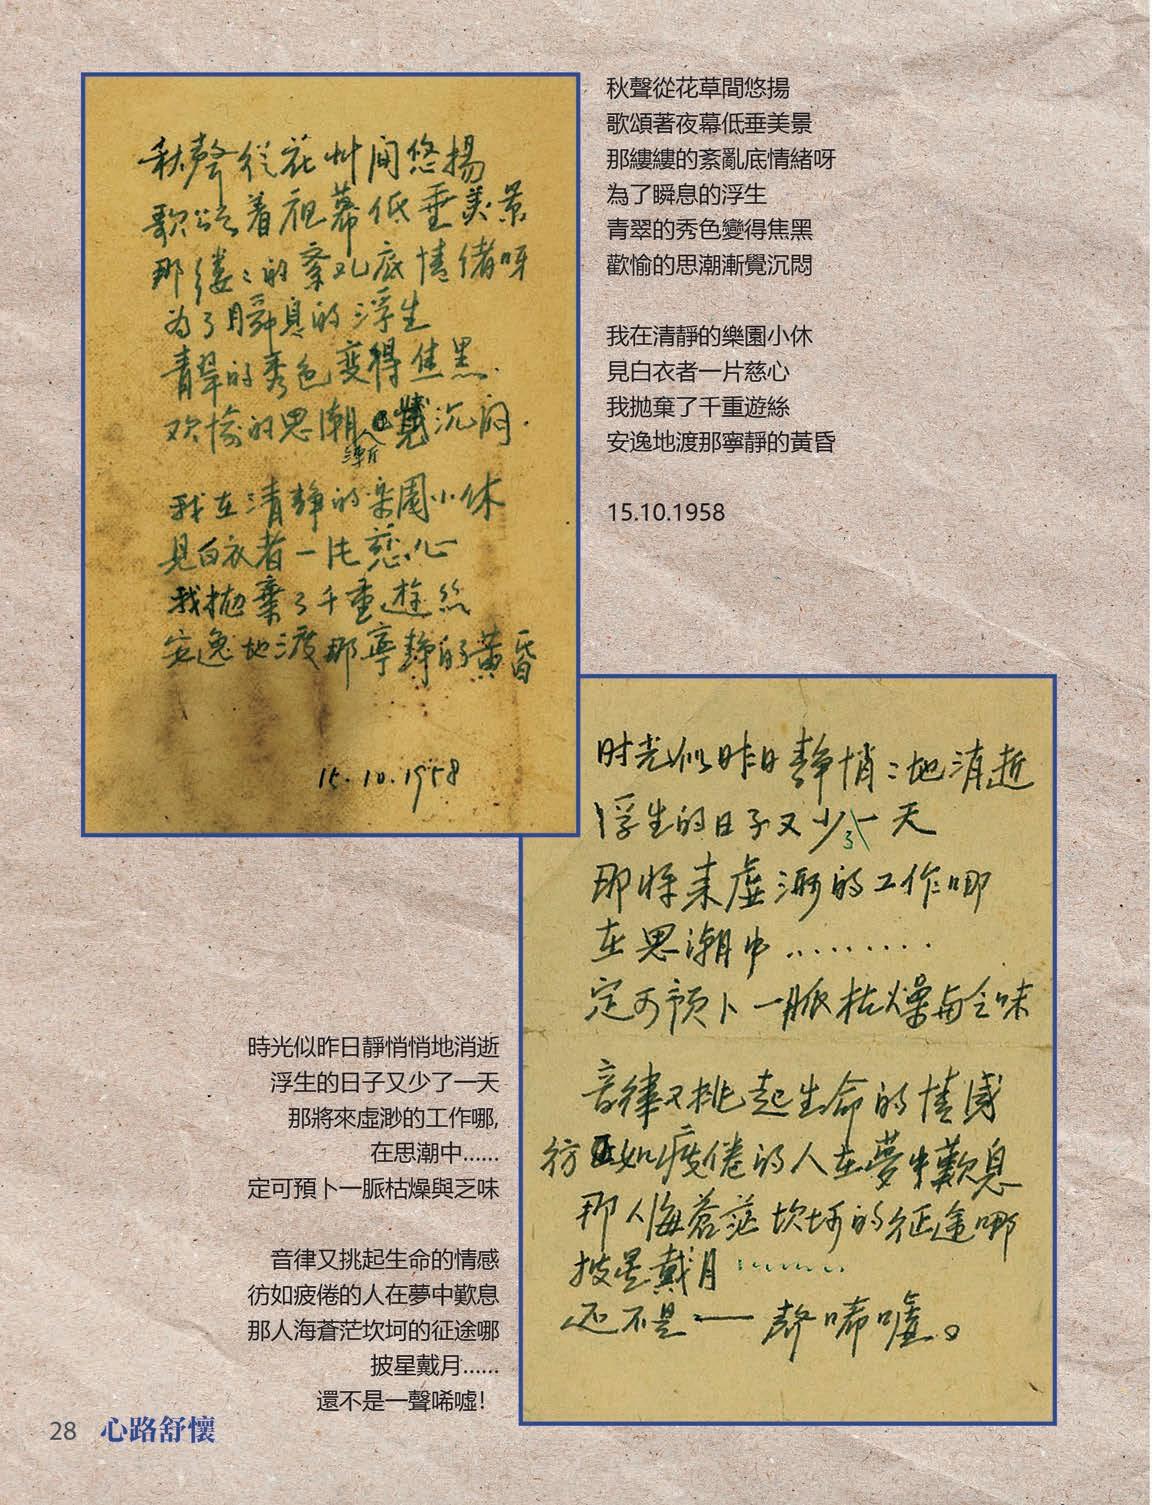 秋聲從花艸间悠揚
歌讼着夜幕低垂美景
那缕々的紊乱底情绪呀
为了瞬息的浮生
青翠的秀色变得焦黑.
欢愉的思潮渐觉沉闷.
我在清静的楽園小休
見白衣者一片慈心
我抛棄了千重遊丝
安逸地渡那寧静的黄昏
15.10.1958
秋聲從花草間悠揚
歌頌著夜幕低垂美景
那縷縷的紊亂底情緒呀
為了瞬息的浮生
青翠的秀色變得焦黑
歡愉的思潮漸覺沉悶
我在清靜的樂園小休
見白衣者一片慈心
我拋棄了千重遊絲
安逸地渡那寧靜的黃昏
15.10.1958
时光似昨日静悄々地消逝
浮生的日子又少了一天
那将来虚渺的工作哪
在思潮中.........
定可预卜一脈枯燥与乏味
音律又挑起生命的情感
彷如疲倦的人在夢中歎息
那人海蒼茫坎坷的征途哪
披星戴月.........
还不是一聲唏嘘。
時光似昨日靜悄悄地消逝
浮生的日子又少了一天
那將來虛渺的工作哪,
在思潮中......
定可預卜一脈枯燥與乏味
音律又挑起生命的情感
彷如疲倦的人在夢中歎息
那人海蒼茫坎坷的征途哪
披星戴月......
還不是一聲唏噓！
28 心路舒懷